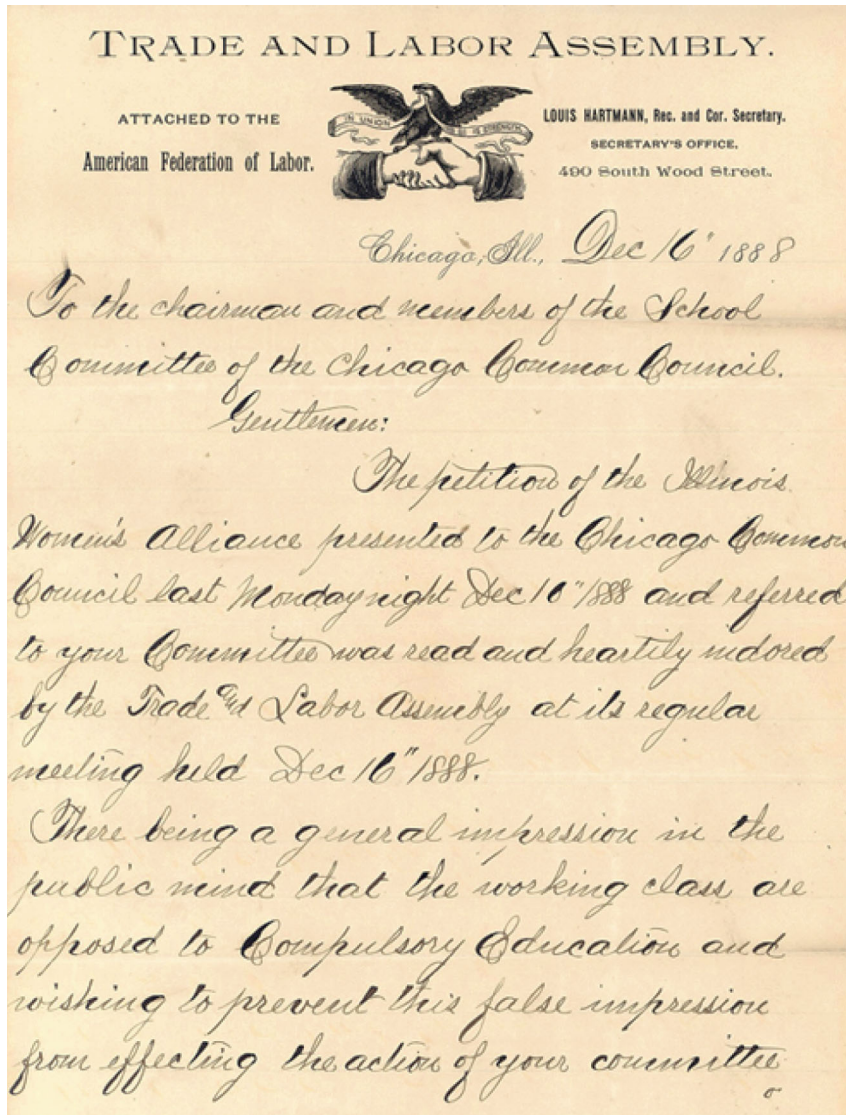 TRADE AND LABOR ASSEMBLY.
ATTACHED TO THE
American Federation of Labor.
IN UNION IS STRENGTH
LOUIS HARTMANN, Rec. and Cor. Secretary.
SECRETARY'S OFFICE,
490 South Wood Street.
Chicago, Ill., Dec 16" 1888
To the chairman and members of the School
Committee of the Chicago Common Council.
Gentlemen:
The petition of the Illinois
Women's Alliance presented to the Chicago Common
Council last Monday night Dec 10"/888 and referred
to your Committee was read and heartily indored
by the Trade and Labor Assembly at its regular
meeting held Dec 16"/888.
There being a general impression in the
public mind that the working class are
opposed to Compulsory Education and
wishing to prevent this false impression
from effecting the action of your committee